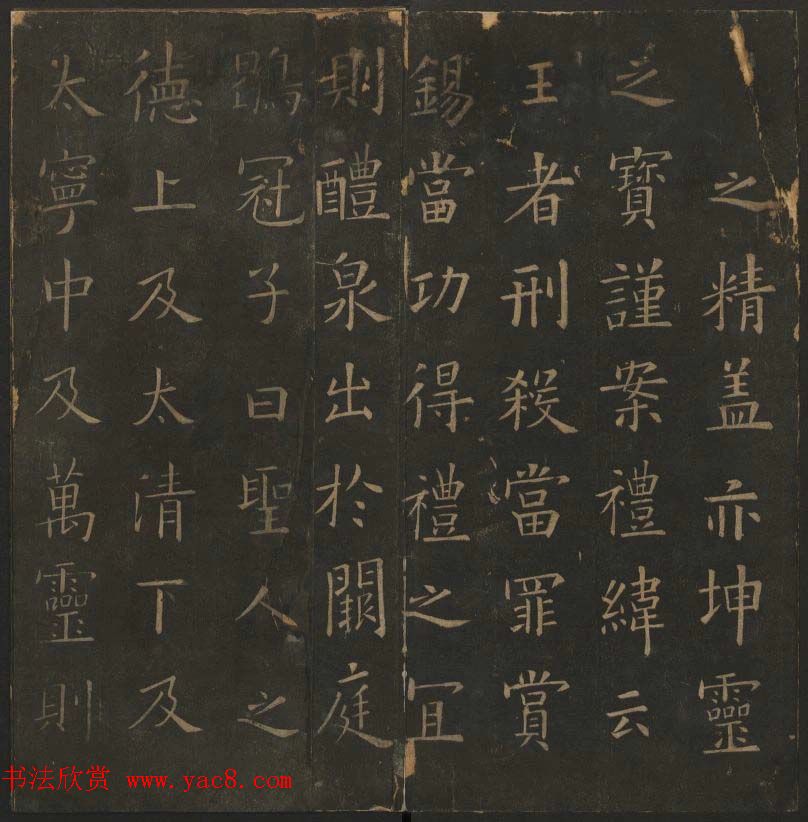 之精盖亦坤靈
之寶謹案禮緯云
王者刑殺當罪賞
錫當功得禮之宜
則醴泉出於闕庭
鶡冠子曰聖人之
德上及太清下及
太寧中及萬靈則
书法欣赏 www.yac8.com